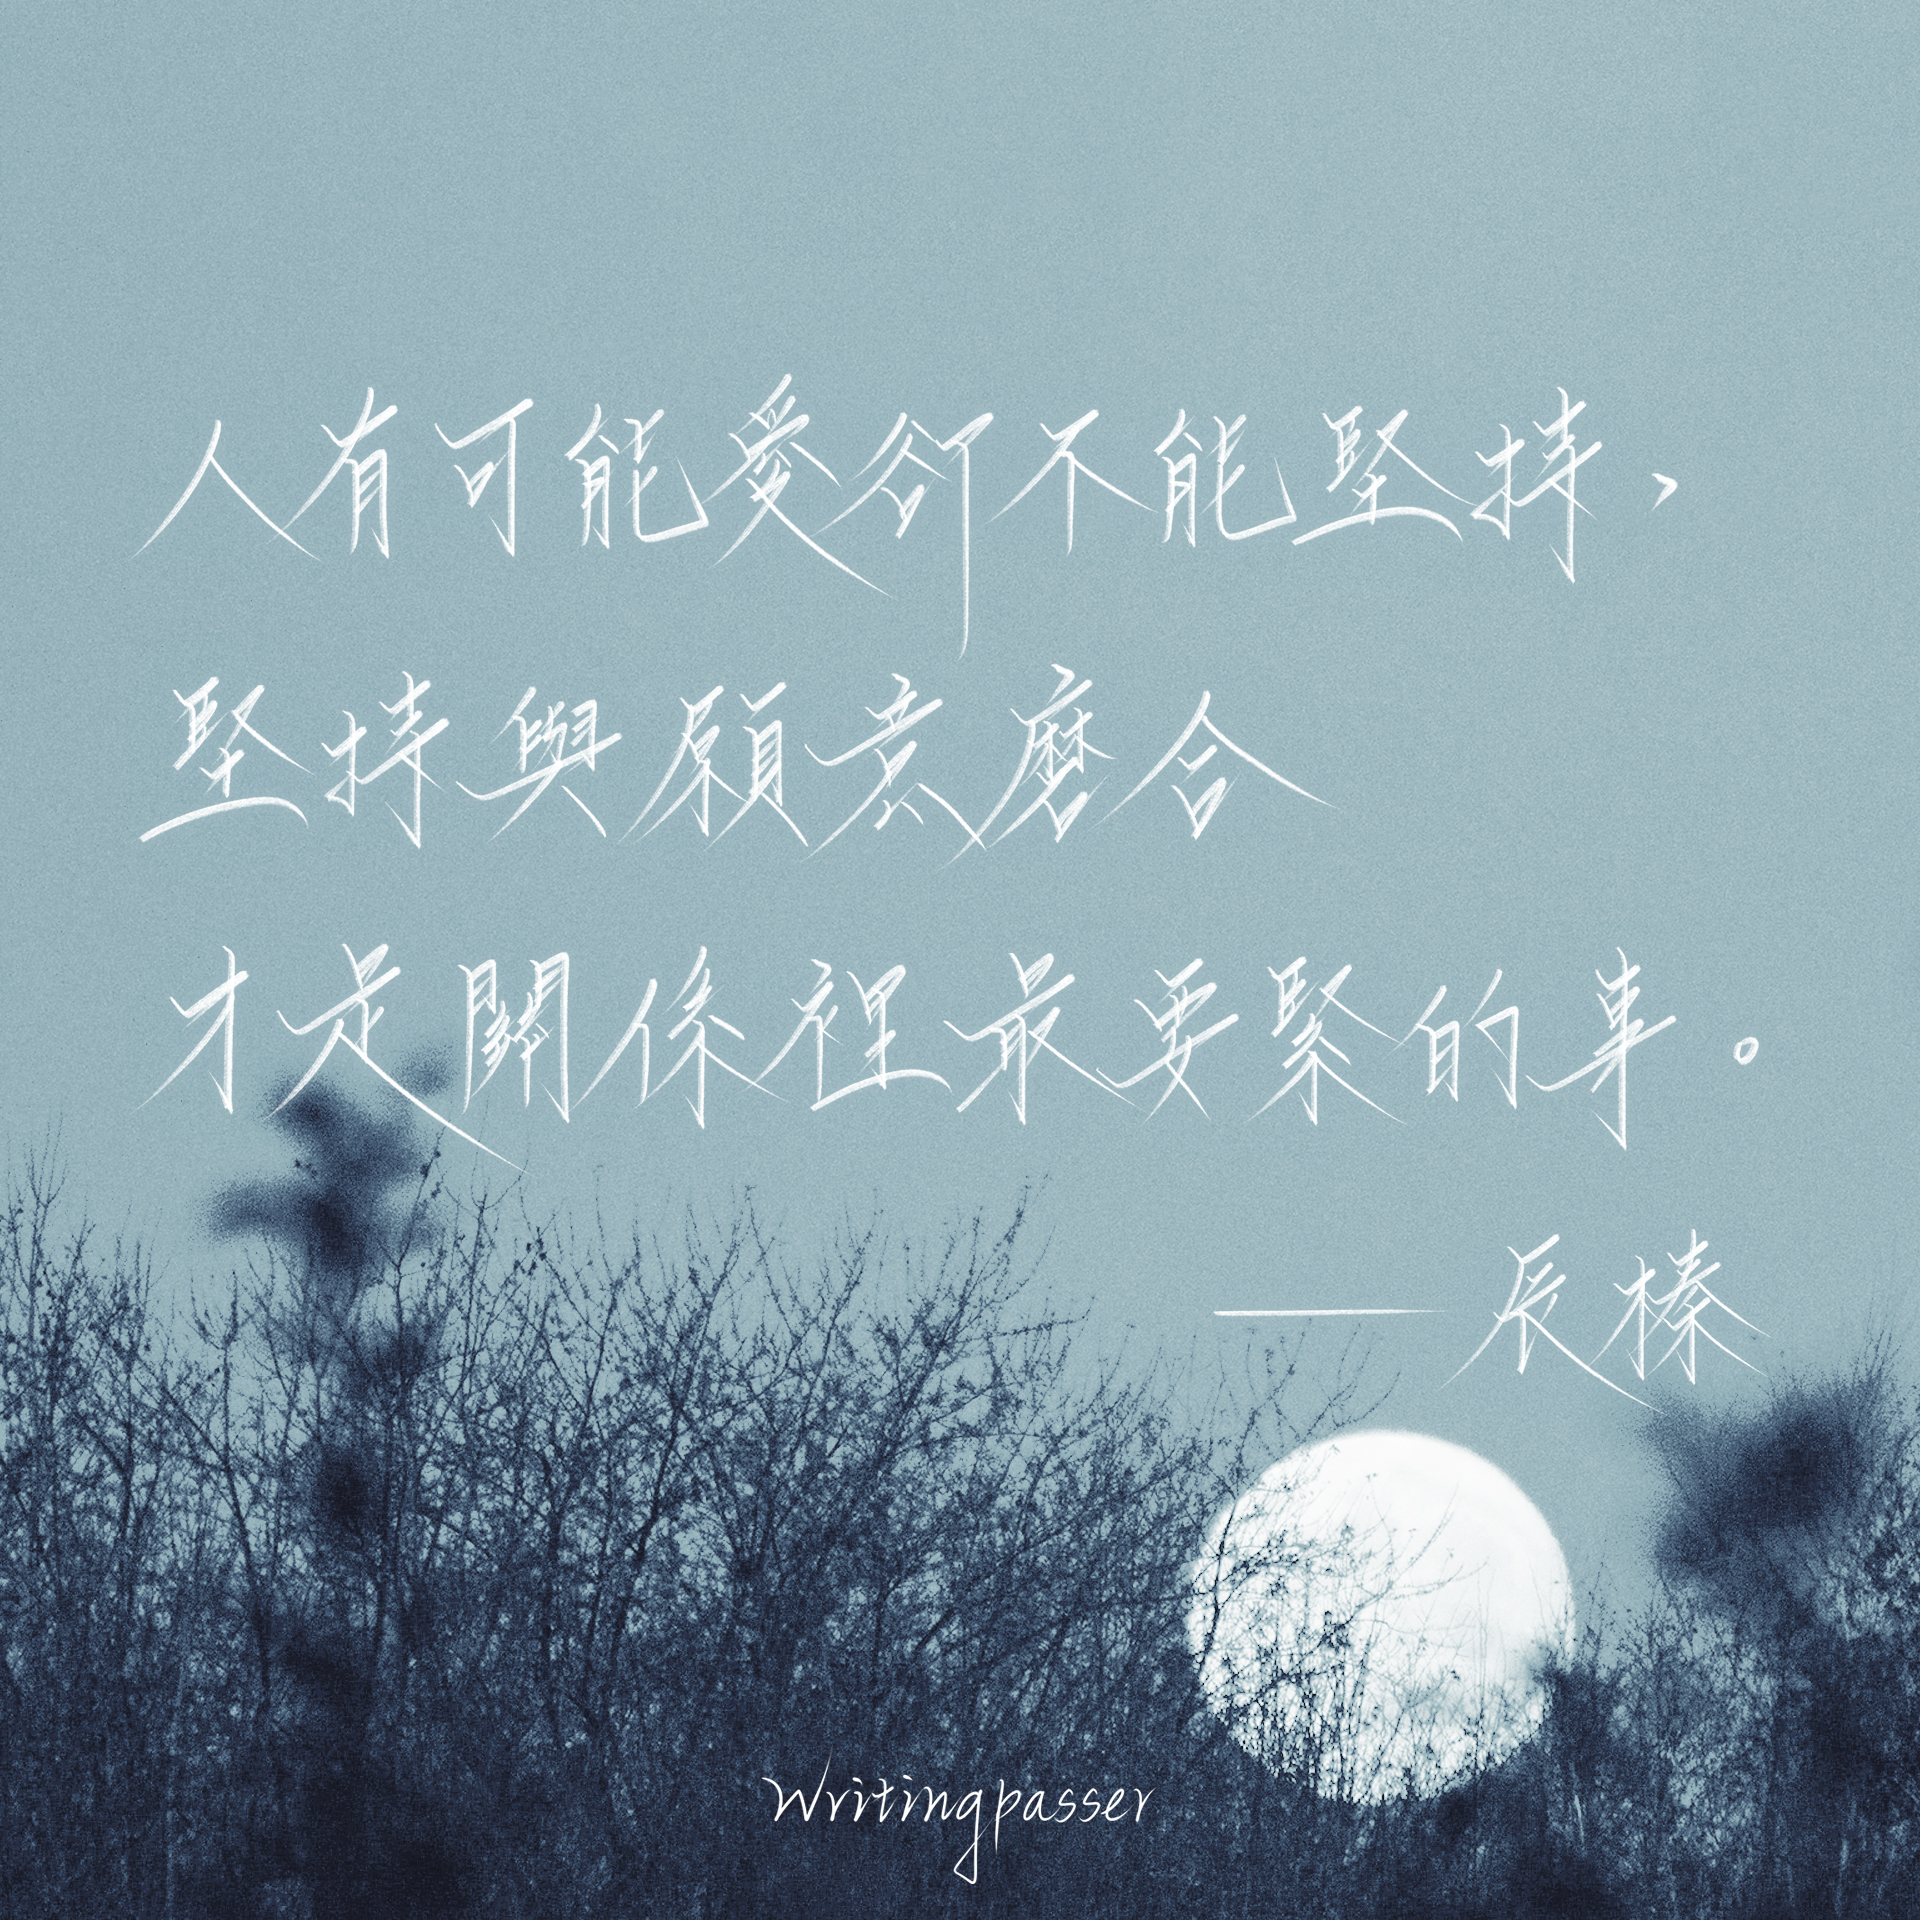 人有可能愛卻不能堅持，
堅持與願意磨合
才是關係裡最要緊的事。
——辰榛
Writingpasser